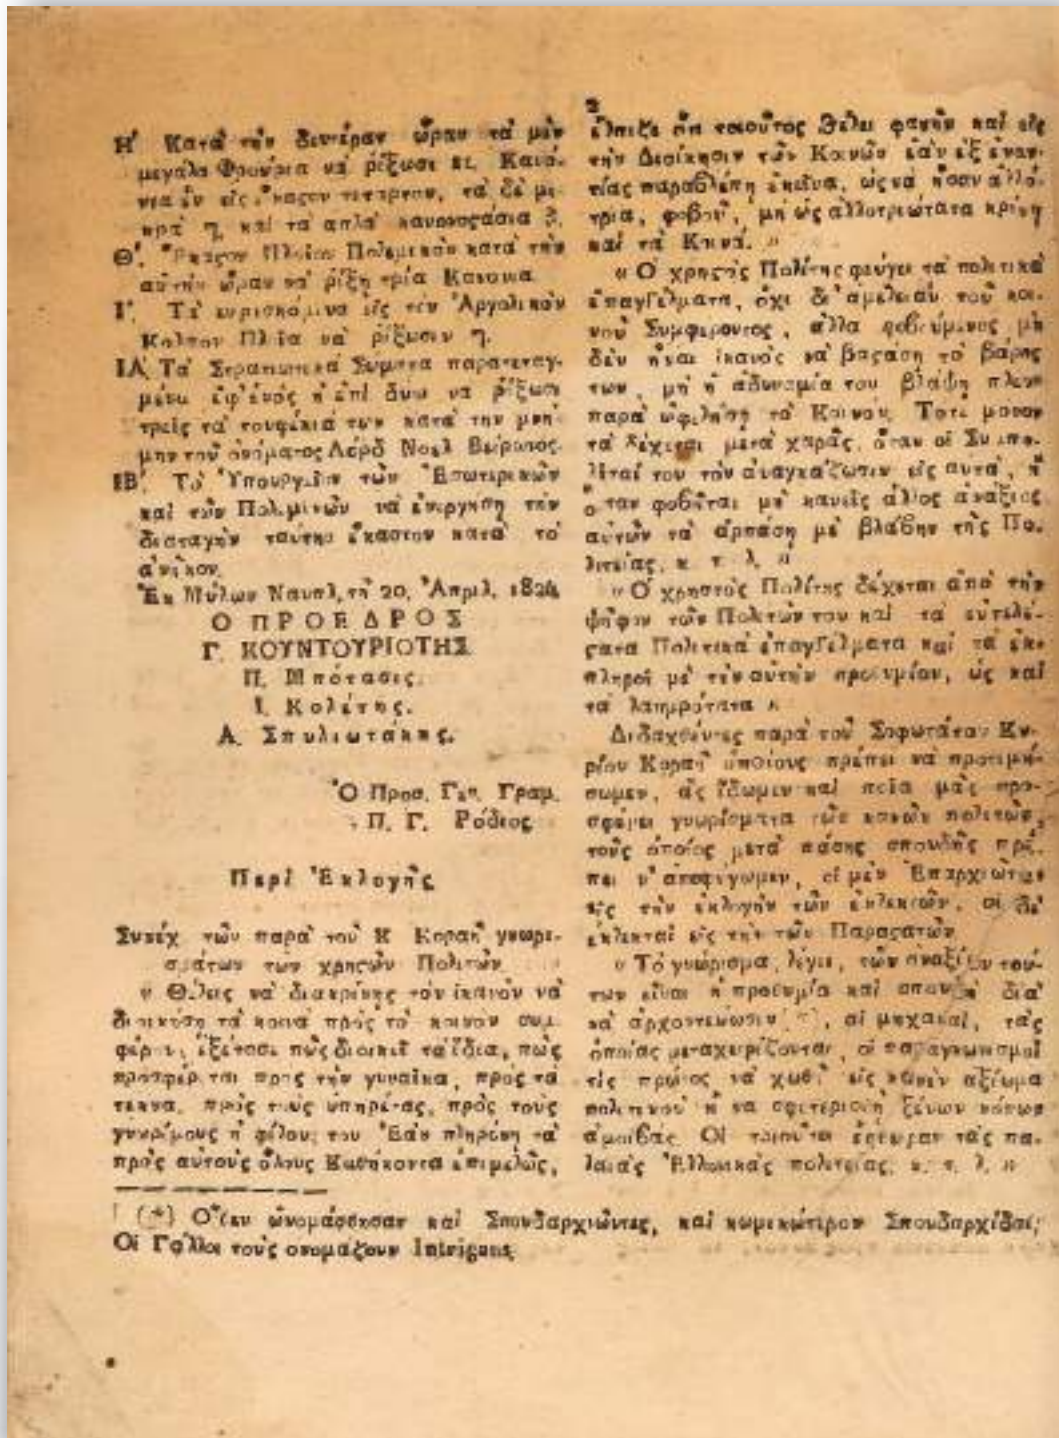 2
Η' Κατα' την δευτέραν ὥραν τα' μὲν
μεγάλα Φρούρια να' ῥίξωσι κι. Κανό-
νια ἓν εἰς ἕκαςον τέταρτον, τα' δὲ μι-
κρα' η, και τα απλα' κανονοςάσια 3.
Θ'. Ἕκαςον Πλοῖον Πολεμικὸν κατα' την
αὐτὴν ὥραν να' ῥίξη τρία Κανονια
Ι'. Τα' ευρισκόμενα εἰς τον Ἀργολικὸν
Κολπον Πλοῖα να' ῥίξωσιν η.
ΙΑ'. Τα' Στρατιωτικα' Σώματα παρατεταγ-
μένα ἐφ'ἑνός ἢ ἐπί δυω να ῥίξωσι
τρεῖς τα' τουφέκιά των κατα' την μνή-
μην τοῦ ὀνόματος Λόρδ Νοελ Βαίρωνος.
ΙΒ'. Το' Ὑπουργεῖον τῶν Ἐσωτερικῶν
και τῶν Πολεμικῶν να' ἐνεργήση την
διαταγὴν ταυτην ἕκαστον κατα' το'
ἀνῆκον.
Ἐκ Μύλων Ναυπλ. τῇ 20, Ἀπριλ. 1824
Ο ΠΡΟΕΔΡΟΣ
Γ. ΚΟΥΝΤΟΥΡΙΟΤΗΣ
Π. Μπότασις.
Ι. Κολέτης.
Α. Σπυλιωτάκης.
Ὁ Προσ. Γεν. Γραμ.
Π. Γ. Ρόδιος
Περί Ἐκλογῆς
Συνέχ τῶν παρα' τοῦ Κ Κοραῆ γνωρι-
σμάτων των χρηςῶν Πολιτῶν
» Θέλεις να' διακρίνης τον ἱκανὸν να'
διοικήση τα' κοινα' προς το' κοινον συμ-
φέρον; ἐξέτασε πῶς διοικεῖ τα ἴδια, πῶς
προσφέρεται προς την γυναῖκα, προς τα'
τεκνα, προς τους ὑπηρέτας, προς τους
γνωρίμους ἢ φίλους του Ἐα'ν πληρόνη τα'
προς αὐτους ὅλους Καθήκοντα ἐπιμελῶς,
ἔλπιζε ὅτι τοιοῦτος θέλει φανῆν και εἰς
την Διοίκησιν τῶν Κοινῶν ἐα'ν ἐξ ἐναν-
τίας παραβλέπη ἐκεῖνα, ὡς να' ἦσαν ἀλλό-
τρια, φοβοῦ, μη ὡς ἀλλοτριώτατα κρίνη
και τα' Κοινά. »
« Ὁ χρηςος Πολίτης φευγει τα' πολιτικα'
ἐπαγγέλματα, ὄχι δι' ἀμέλειαν τοῦ κοι-
νοῦ Συμφεροντος, ἀλλα φοβούμενος μη
δεν ἦναι ἱκανος να' βαςάση το' βάρος
των, μη ἡ ἀδυναμία του βλάψη πλεον
παρα' ὠφελήση το' Κοινον. Τοτε μονον
τα' δέχεται μετα' χαρᾶς, ὅταν οἱ Συμπο-
λῖταί του τον ἀναγκάζωσιν εἰς αυτα', ἢ
ὅταν φοβῆται μη κανεις ἄλλος ἀνάξιος
αὐτῶν τα' ἁρπάση με' βλάβην τῆς Πο-
λιτείας, κ. τ. λ. »
« Ὁ χρηστος Πολίτης δέχεται ἀπο' την
ψῆφον τῶν Πολιτῶν του και τα' εὐτελέ-
ςατα Πολιτικα' ἐπαγγέλματα και τα' ἐκ-
πληροῖ με' την αὐτην προθυμίαν, ὡς και
τα' λαμπρότατα »
Διδαχθέντες παρα' τοῦ Σοφωτάτου Κυ-
ρίου Κοραῆ ὁποίους πρέπει να' προτιμή-
σωμεν, ἀς ἴδωμεν και ποῖα μα'ς προ-
σφέρει γνωρίσματα τῶν κακῶν πολιτῶν,
τους ὁποίους μετα' πάσης σπουδῆς πρέ-
πει ν'αποφύγωμεν, οἱ μεν Ἐπαρχιῶται
εἰς την ἐκλογην τῶν ἐκλεκτῶν, οἱ δε'
ἐκλεκτοι εἰς την τῶν Παραςατῶν
« Το' γνώρισμα, λέγει, τῶν ἀναξίων τού-
των εἶναι ἡ προθυμία και σπουδη δια'
να' ἀρχοντεύωσιν (*), αἱ μηχαναι, τα'ς
ὁποίας μεταχειρίζονται, οἱ παραγκωνισμοι
τίς πρῶτος να' χωθῆ εἰς κανεν ἀξίωμα
πολιτικον ἢ να σφετερισθῆ ξένων κόπων
ἀμοιβάς. Οἱ τοιοῦτοι ἔφθειραν τα'ς πα-
λαια'ς Ἑλληνικα'ς πολιτείας. κ. τ. λ. »
(*) Ὅθεν ὠνομάσθησαν και Σπουδαρχιῶντες, και κωμικώτερον Σπουδαρχίδαι;
Οἱ Γάλλοι τους ονομάζουν Intrigans